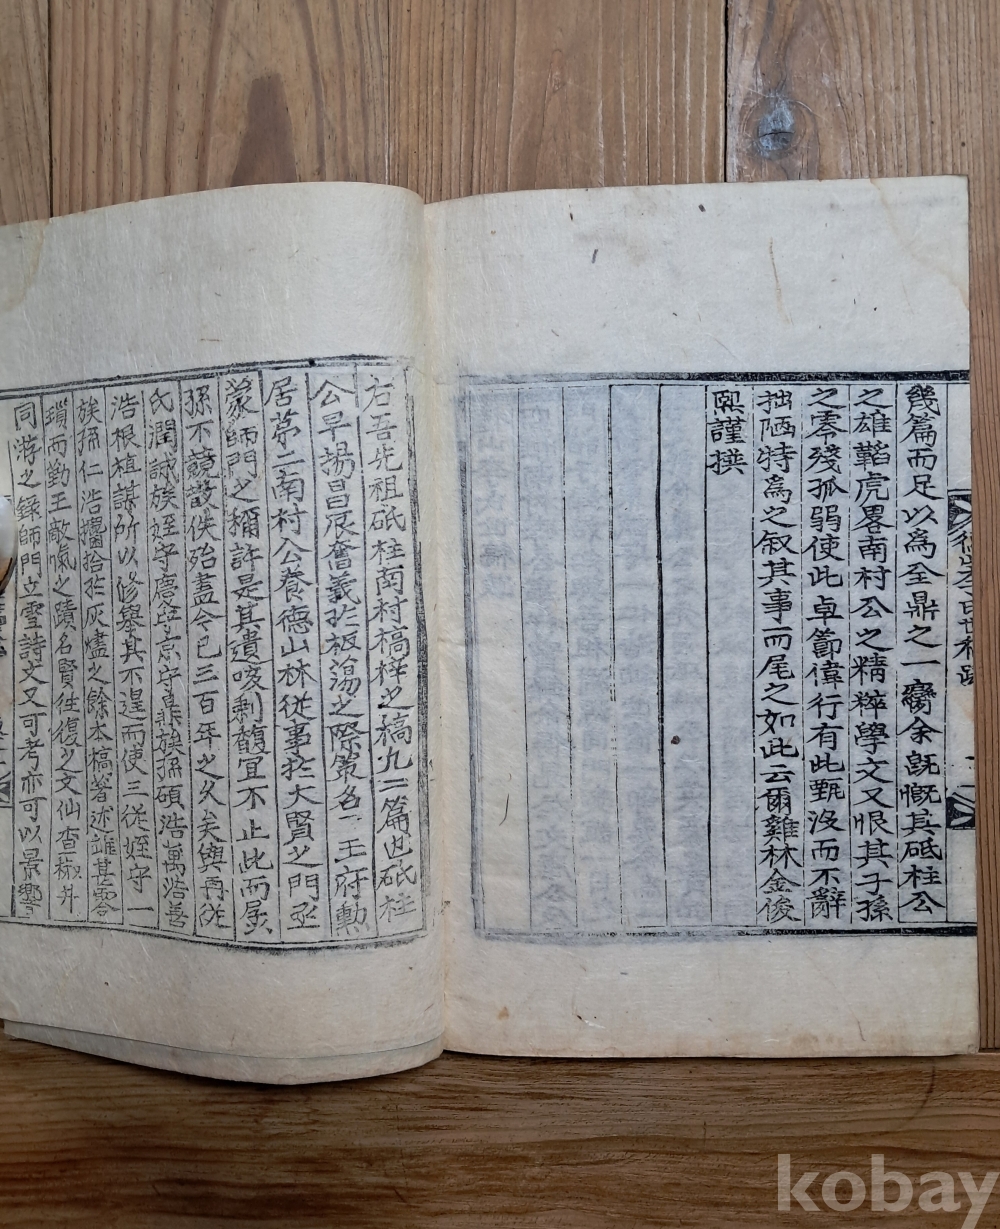 幾篇而足以為全鼎之一臠余旣慨其砥柱公
之雄韜虎畧南村公之精粹學文又恨其子孫
之零殘孤弱使此卓節偉行有此甄沒而不辭
拙陋特為之叙其事而尾之如此云爾雞林金俊
熙謹撰
右吾先祖砥柱南村稿梓之稿九二篇也砥柱
公早揚昌辰奮義於板蕩之際策名一王府勳
居第二南村公養德山林從事於大賢之門亟
蒙師門之稱許是其遺咳剩馥冝不止此而孱
孫不競散佚殆盡今已三百年之久矣與再從
氏潤誠族姪守慶 京守 族孫碩浩萬浩善
浩根植謀所以修擧其不遑而使三從姪守一
族孫仁浩攟拾於灰燼之餘本稿著述雖甚零
瑣而勤王敵愾之蹟名賢往復之文仙查 
同游之錄師門立雪詩文又可考亦可以景響
kobay